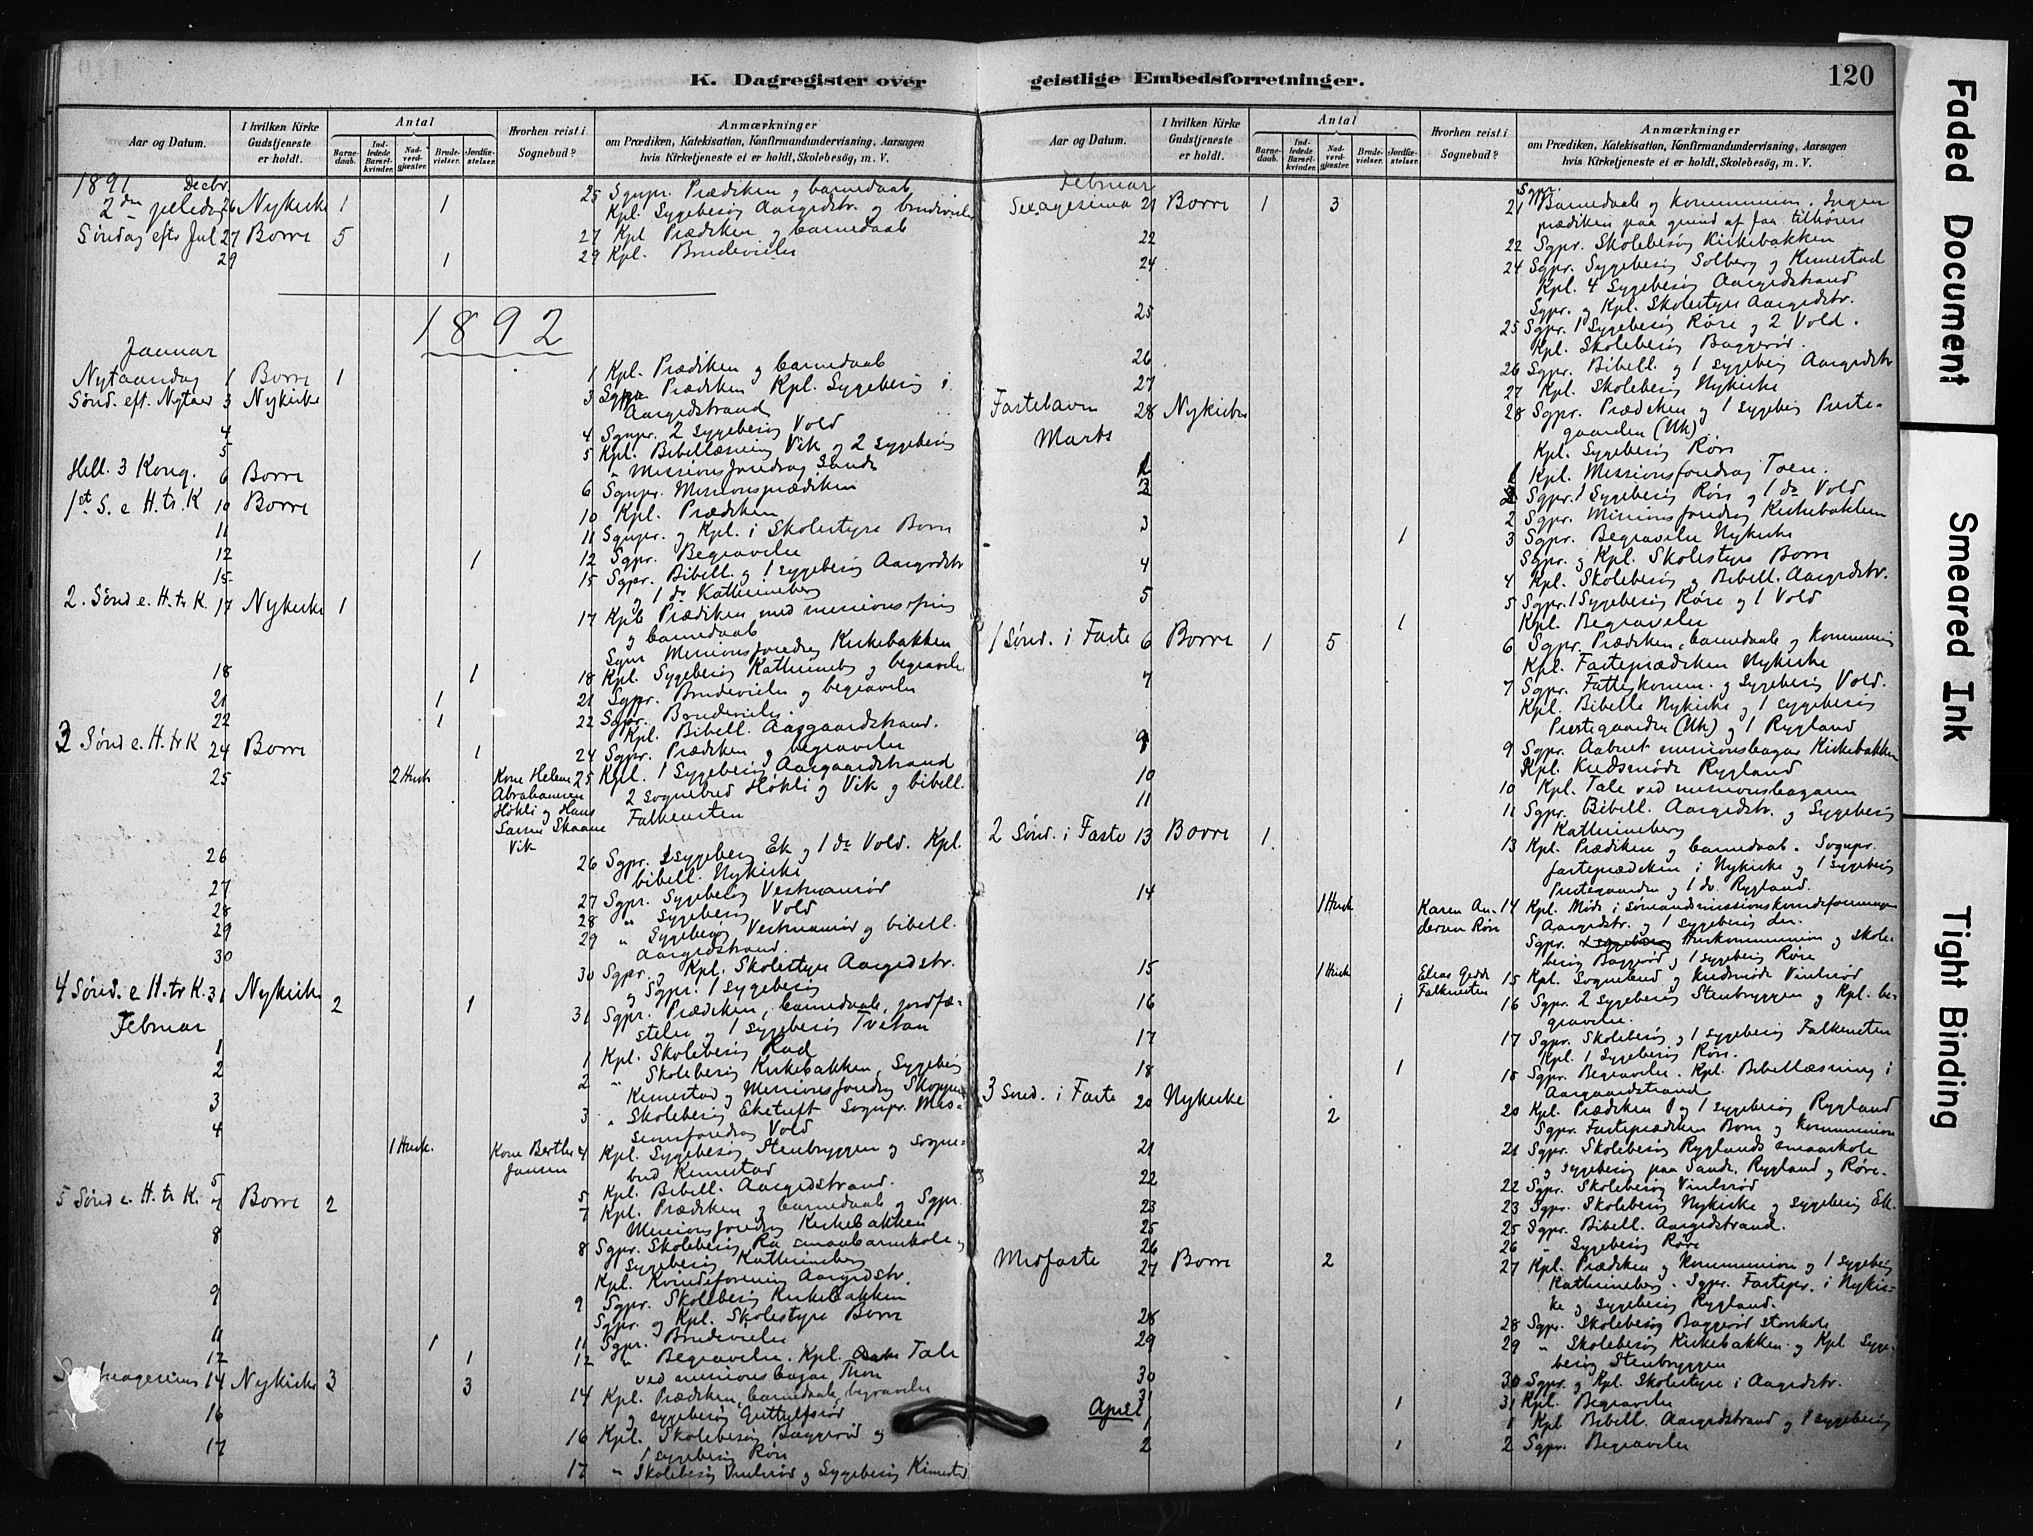 K. Dagregister over geistlige Embedsforretninger.
120
Aar og Datum.
I hvilken Kirke Gudstjeneste er holdt.
Antal
Barnedaab.
Indledede Barselkvinder.
Nadverdgjæster.
Brudevielser.
Jordfæstelser.
Hvorhen reist i Sognebud?
Anmærkninger
om Prædiken, Katekisation, Konfirmandundervisning, Aarsagen
hvis Kirketjeneste ei er holdt, Skolebesøg, m. V.
1891 Decbr.
2den juledag 26 Nykirke 1 1
25 Sgnpr. Prædiken og barnedaab
Kpl. Sygebesøg Aargrdstr. og brudevielse
Søndag efter Jul 27 Borre 5 27 Kpl Prædiken og barnedaab
29 1 29 Kpl. Brudevielse
1892
Januar
Nytaarsdag 1 Borre 1 1 Kpl. Prædiken og barnedaab
Sønd. eft. Nytaar 3 Nykirke 3 Sgpr. Prædiken Kpl. Sygebesøg i
Aargrdstrand
4 4 Sgnpr. 2 Sygebesøg Vold
5 5 Kpl. Bibellæsning Vik og 2 sygebesøg
" Missionsforedrag Sande
Hell. 3 Kong. 6 Borre 6 Sgnpr. Missionsprædiken
1st. S. e H. tr. K 10 Borre 10 Kpl. Prædiken
11 11 Sgnpr. og Kpl. i Skolestyre Borre
12 1 12 Sgpr. Begravelse
15 15 Sgpr. Bibell. og 1 sygebesøg Aargrdstr
og 1 do Kathrineberg
2. Sønd e. H. tr K. 17 Nykirke 1 17 Kpl. Prædiken med missionsofring
og barnedaab
Sgnr Missionsforedrag Kirkebakken
18 1 18 Kpl. Sygebesøg Kathrineb. og begravelse
21 1 21 Sgpr. Brudevielse og begravelse
22 1 22 Sgpr. Brudevielse.
Kpl. Bibell. Aasgaardstrand.
3 Sønd e. H. tr K 24 Borre 1 24 Sgpr. Prædiken og begravelse
25 2 Husk Kone Helene Abrahamsen Høkli og Hans Larsen Skaane Vik
25 Kpl. 1 Sygebesøg Aargaardstrand
2 sognebud Høkli og Vik og bibell.
Falkensten
26 26 Sgpr. sygebesøg Ek og 1 do Vold. Kpl.
bibell. Nykirke
27 27 Sgpr. Sygebesøg Vestmanrød
28 28 " Sygebesøg Vold
29 29 " Sygebesøg Vestmanrød og bibell.
Aargrdstrand.
30 30 Sgpr. og Kpl. Skolestyre Aargrdstr.
og Sgpr. 1 sygebesøg
4 Sønd. e H. tr K. 31 Nykirke 2 1 31 Sgpr. Prædiken, barnedaab, jordfæ-
stelse og 1 sygebesøg Tvetan
Februar
1 1 Kpl. Skolebesøg Rød
2 2 " Skolebesøg Kirkebakken, Sygebesøg
Kimestad og Missionsforedrag Skoppum
3 3 " Skolebesøg Eketuft Sognpr. Mis-
sionsforedrag Vold
4 1 Husk. Kone Berthe Jansen 4 Kpl. Sygebesøg Stenbryggen og sogne-
bud Kimestad
5 5 Kpl. Bibell. Aargrdstrand.
5 Sønd e. H. tr K. 7 Borre 2 7 Kpl. Prædiken og barnedaab og Sgpr.
Missionsforedrag Kirkebakken
8 8 Sgpr. Skolebesøg Ra smaabarnskole og
sygebesøg Kathrineberg
Kpl. Kvindeforening Aargrdstr.
9 9 Sgpr. Skolebesøg Kirkebakken
Sgpr. og Kpl. Skolestyre Borre
11 1 11 Sgpr. Brudevielse
12 1 12 " Begravelse. Kpl. Tale
ved missionsbasar Thon
14 Nykirke 3 3 14 Kpl. Prædiken, barnedaab, begravelse
og sygebesøg
16 16 Kpl. Skolebesøg Baggerød og
1 sygebesøg Røre
17 17 " Skolebesøg Vinlsrød og Sygebesøg Kimestad
Aar og Datum.
I hvilken Kirke Gudstjeneste er holdt.
Antal
Barnedaab.
Indledede Barselkvinder.
Nadverdgjæster.
Brudevielser.
Jordfæstelser.
Hvorhen reist i Sognebud?
Anmærkninger
om Prædiken, Katekisation, Konfirmandundervisning, Aarsagen
hvis Kirketjeneste ei er holdt, Skolebesøg, m. V.
Februar
Sexagesima 21 Borre 1 3 21 Sgpr. Barnedaab og Kommunion. Ingen
prædiken paa grund af faa tilhørere
22 22 Sgpr. Skolebesøg Kirkebakken
24 24 Sgpr. Sygebesøg Solberg og Kimestad
Kpl. 4 Sygebesøg Aargrdstrand
Sgpr. og Kpl. Skolestyre Aargrdstr.
25 25 Sgpr. 1 Sygebesøg Røre og 2 Vold.
Kpl. Skolebesøg Baggerød.
26 26 Sgpr. Bibell. og 1 sygebesøg Aargrdstr
27 27 Kpl. Skolebesøg Nykirke
Fastelavn 28 Nykirke 28 Sgpr. Prædiken og 1 sygebesøg Preste-
gaarden (Nk)
Kpl. Sygebesøg Røre
Marts
1 Kpl. Missionsforedrag Toen.
2 Sgpr. 1 Sygebesøg Røre og 1 do Vold
2 Sgpr. Missionsforedrag Kirkebakken
3 1 3 Sgpr. Begravelse Nykirke
Sgpr. og Kpl. Skolestyre Borre
4 4 Kpl. Skolebesøg og Bibell. Aargrdstr.
5 5 Sgpr. 1 Sygebesøg Røre og 1 Vold
1 Kpl. Begravelse
1 Sønd. i Faste 6 Borre 1 5 6 Sgpr. Prædiken, barnedaab og Kommunion
Kpl. Fasteprædiken Nykirke
7 7 Sgpr. Fattigkomm. og Sygebesøg Vold.
Kpl. Bibelle Nykirke og 1 sygebesøg
Prestegaarden (Nk) og 1 Rygland
9 9 Sgpr. Aabnet missionsbasar Kirkebakken
Kpl. Kredsmøde Rygland
10 10 Kpl. Tale ved missionsbasaren
11 11 Sgpr. Bibell. Aargrdstr. og Sygebesøg
Kathrineberg
2 Sønd. i Faste 13 Borre 1 13 Kpl. Prædiken og barnedaab. Sognpr.
fasteprædiken i Nykirke og 1 sygebesøg
Prestegaarden og 1 do. Rygland.
14 1 Husk Karen Andersen Røre 14 Kpl. Møde i sømandsmissionskvindeforeningen
Aargrdstr. og 1 sygebesøg der.
Sgpr. Huskommunion og skole-
besøg Baggerød og 1 sygebesøg Røre
15 1 Husk Elias Gedde Falkensten 15 Kpl. Sognebud og kredsmøde Vinlsrød
16 1 16 Sgpr. 2 Sygebesøg Stenbryggen og Kpl. be-
gravelse.
17 17 Sgpr. Skolebesøg og 1 sygebesøg Falkensten
Kpl. 1 Sygebesøg Røre.
18 1 18 Sgpr. Begravelse. Kpl. Bibellæsning i
Aargaardstrand
3 Sønd. i Faste 20 Nykirke 2 20 Kpl. Prædiken og 1 sygebesøg Rygland
Sgpr. Fasteprædiken Borre og Kommunion
21 21 Sgpr. Skolebesøg Ryglands smaaskole
og sygebesøg paa Sande, Rygland og Røre.
22 22 Sgpr. Skolebesøg Vinlsrød
23 23 Sgpr. Skolebesøg Nykirke og sygebesøg Ek.
25 25 Sgpr. Bibell. Aargrdstrand.
26 26 " Sygebesøg Røre
Midfaste 27 Borre 2 27 Kpl. Prædiken og Kommunion og 1 Sygebesøg
Kathrineberg. Sgpr. Fastepr. i Nykir-
ke og Sygebesøg Rygland.
28 28 Sgpr. Skolebesøg Baggerød storskole
29 29 " Skolebesøg Kirkebakken og Kpl Syge-
besøg Stenbryggen
30 30 Sgpr. og Kpl. Skolestyre i Aagrdstr.
31 1 31 Kpl. Begravelse
April 1 1 Kpl Bibell. Aargrdstrand og 1 sygebesøg
2 1 2 Sgpr. Begravelse
Faded Document
Smeared Ink
Tight Binding